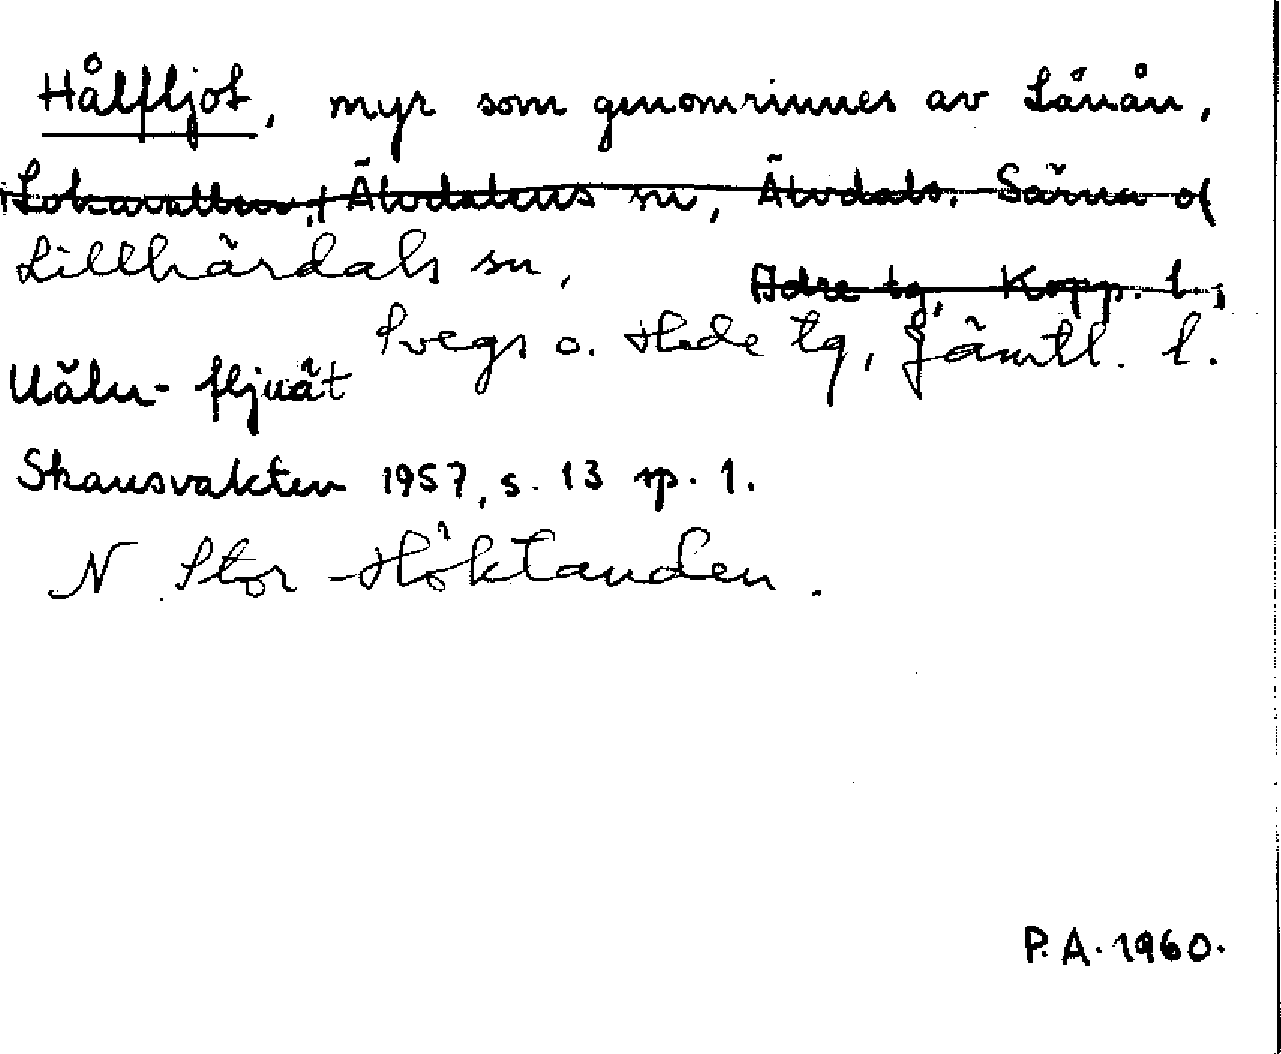 Hålfljot, myr som genomrinnes av Lånån,
Lokavallen, Älvdalens sn, Älvdals. Särna o
Lillhärdals sn,
Idre tg, Kopp. l.,
Svegs o. Hede tg, Jämtl. l.
Uålu- fljuät
Skansvakten 1957, s. 13 sp. 1.
N Stor-Höktanden.
P.A. 1960.